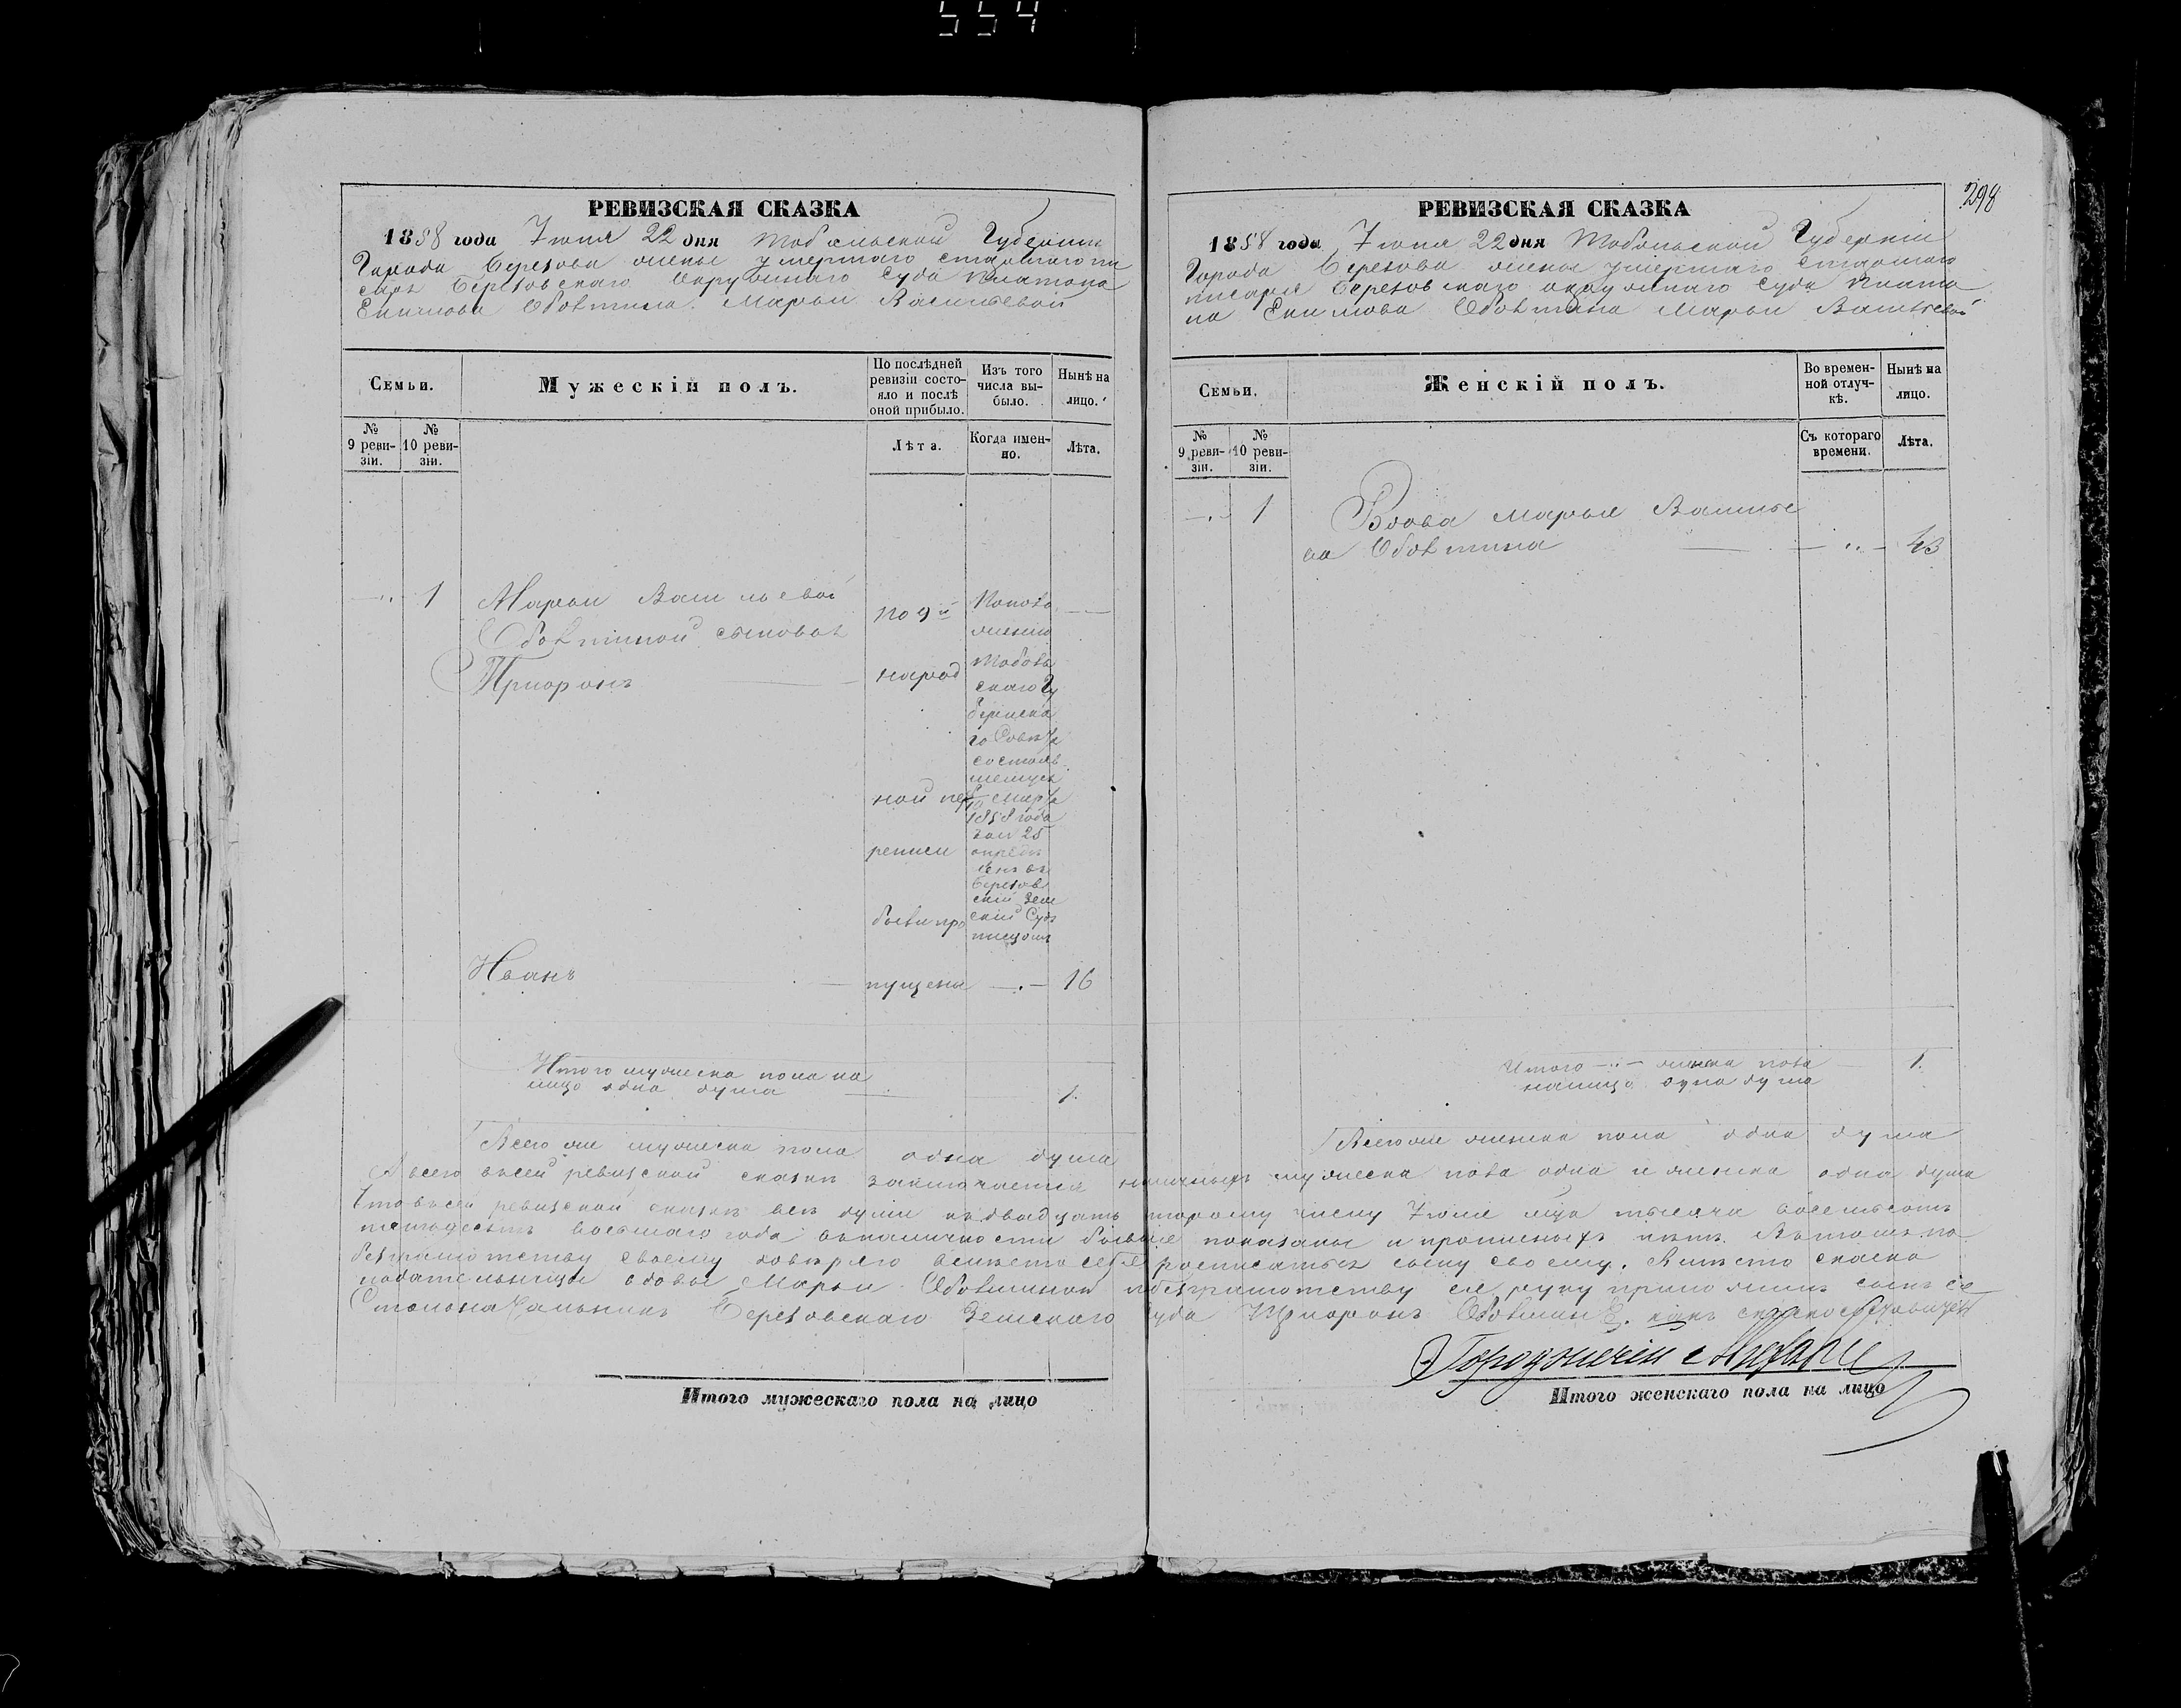 554
298
РЕВИЗСКАЯ СКАЗКА
1858 года Июня 22 дня Тобольской Губернии
Города Березова жены умершаго старшаго пи
саря Березовскаго Окружнаго Суда Платона
Екимова Обовтина Марьи Васильевой
Семьи.
Мужескій полъ.
По послѣдней ревизіи состо-
яло и послѣ
оной прибыло.
Изъ того
числа вы-
было.
Нынѣ на
лицо.
№
9 реви-
зіи.
№
10 реви-
зіи.
Лѣта.
Когда имен-
но.
Лѣта.
1 Марьи Васильевой
сыновья
по 9й
народ
ной пе
реписи
были про
пущены
Тоболь
скаго Гу
бернска
го Совѣта
1858 года
опредѣ
ленъ въ
Березов
скій Зем
скій Судъ
писцомъ
Иванъ
16
Итого мужеска пола на
лицо одна душа 1.
Всего же мужеска пола одна душа
РЕВИЗСКАЯ СКАЗКА
1858 года Июня 22 дня Тобольской Губерніи
Города Березова жены умершаго старшаго
писаря Березовскаго окружнаго суда Плато
на Екимова Обовтина Марьи Васильевой
Семьи.
Женскій полъ.
Во времен-
ной отлуч-
кѣ.
Нынѣ на
лицо.
№
9 реви-
зіи.
№
10 реви-
зіи.
Съ котораго
времени.
Лѣта.
1 Вдова Марья Василье
ва Обовтина 43
Итого женска пола 1.
налицо одна душа
Всего же женска пола одна душа
А всего въ сей ревизской сказкѣ заключается наличныхъ мужеска пола одна и женска одна душа
Что въ сей ревизской сказкѣ всѣ души къ двадцать второму числу Июня мца тысяча восемьсотъ
пятьдесятъ восьмаго года въ наличности бывшіе показаны и прописныхъ нѣтъ. Въ томъ по
безграмотству своему довѣряю вмѣсто себя росписаться сыну своему. Вмѣсто сказко
подательницы вдовы Марьи Обовтиной по безграмотству ея руку приложилъ сынъ ея
Столоначальникъ Березовскаго Земскаго Суда
Городничій
Итого мужескаго пола на лицо
Итого женскаго пола на лицо